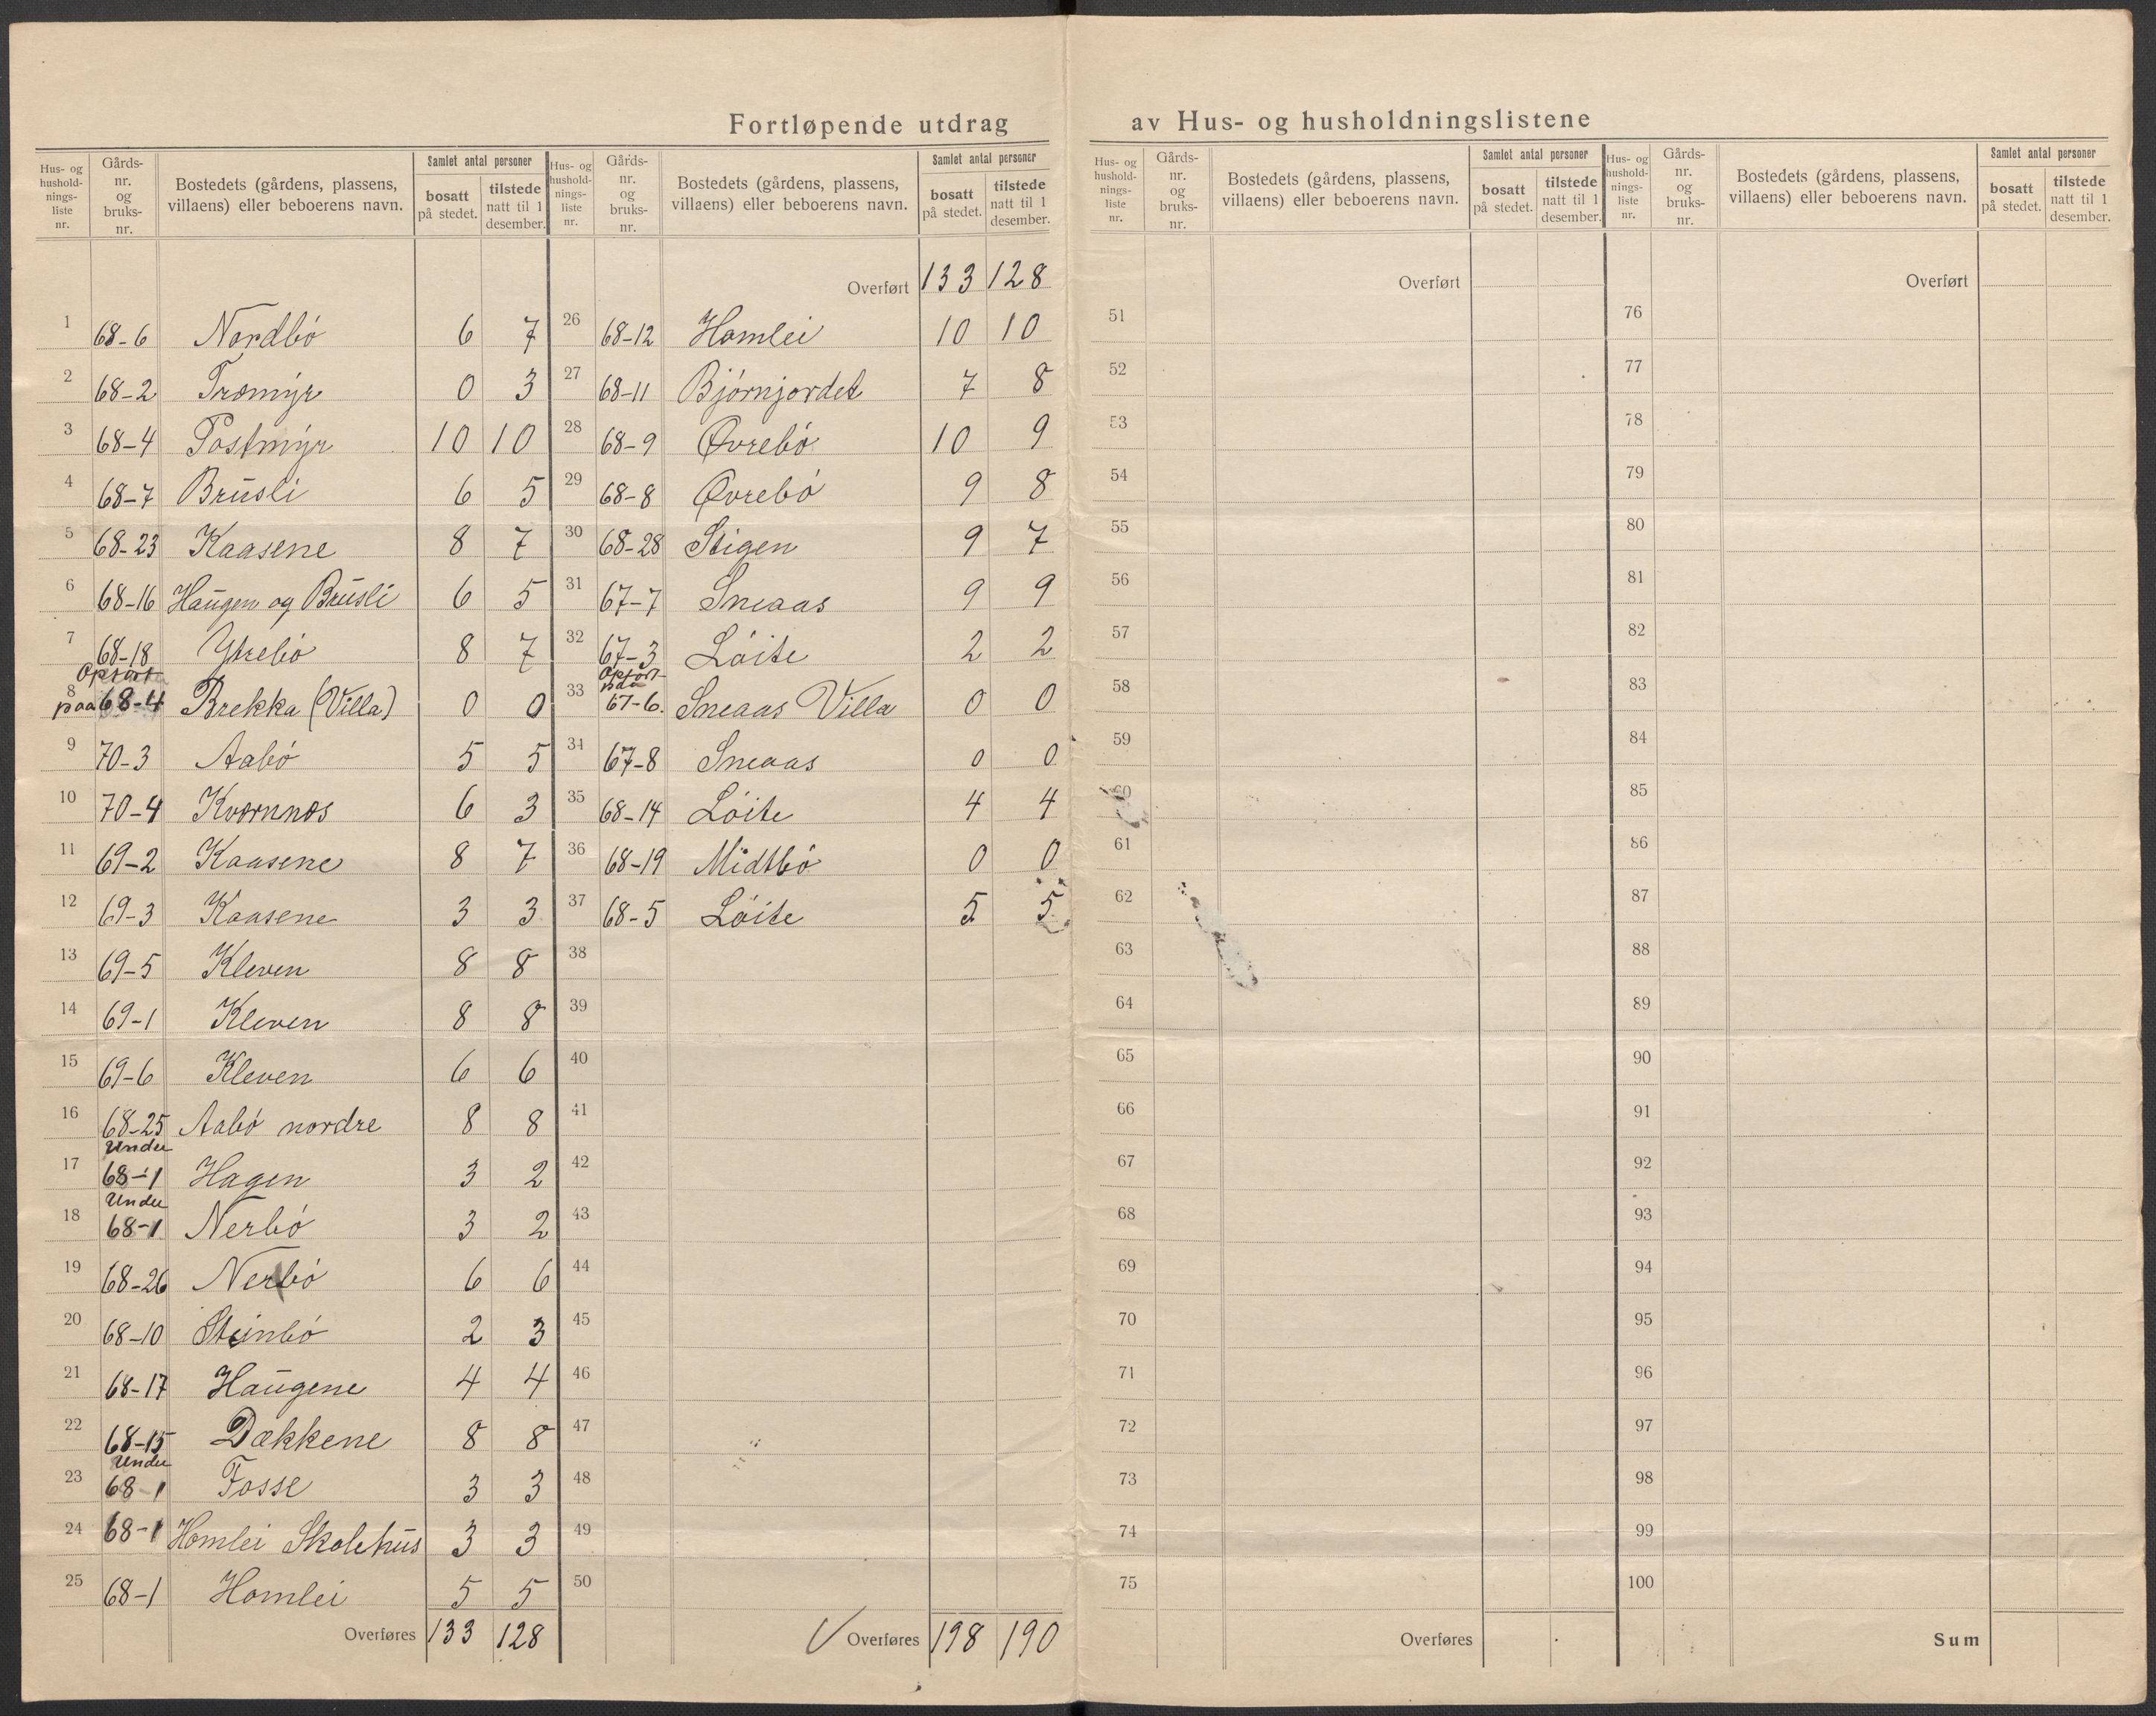 Fortløpende utdrag av Hus- og husholdningslistene
Hus- og hushold-nings-liste nr. | Gårds-nr. og bruks-nr. | Bostedets (gårdens, plassens, villaens) eller beboerens navn. | Samlet antal personer | bosatt på stedet. | tilstede natt til 1 desember.
1 68-6 Nordbø 6 7
2 68-2 Træmÿr 0 3
3 68-4 Postmÿr 10 10
4 68-7 Brūsli 6 5
5 68-23 Kaasene 8 7
6 68-16 Haūgen og Brūsli 6 5
7 68-18 Ytrebø 8 7
Opført
8 paa 68-4 Brekka (Villa) 0 0
9 70-3 Aabø 5 5
10 70-4 Kværnnæs 6 3
11 69-2 Kaasene 8 7
12 69-3 Kaasene 3 3
13 69-5 Kleven 8 8
14 69-1 Kleven 8 8
15 69-6 Kleven 6 6
16 68-25 Aabø nordre 8 8
Under
17 68-1 Hagen 3 2
Under
18 68-1 Nerbø 3 2
19 68-26 Nerbø 6 6
20 68-10 Steinbø 2 3
21 68-17 Haūgene 4 4
22 68-15 Dækkene 8 8
Under
23 68-1 Fosse 3 3
24 68-1 Homlei Skolehūs 3 3
25 68-1 Homlei 5 5
Overføres 133 128
Hus- og hushold-nings-liste nr. | Gårds-nr. og bruks-nr. | Bostedets (gårdens, plassens, villaens) eller beboerens navn. | Samlet antal personer | bosatt på stedet. | tilstede natt til 1 desember.
Overført 133 128
26 68-12 Homlei 10 10
27 68-11 Bjørnjordet 7 8
28 68-9 Øvrebø 10 9
29 68-8 Øvrebø 9 8
30 68-28 Stigen 9 7
31 67-7 Sneaas 9 9
32 67-3 Løite 2 2
Opført
paa
33 67-6. Sneaas Villa 0 0
34 67-8 Sneaas 0 0
35 68-14 Løite 4 4
36 68-19 Midtbø 0 0
37 68-5 Løite 5 5
38
39
40
41
42
43
44
45
46
47
48
49
50
Overføres 198 190
Hus- og hushold-nings-liste nr. | Gårds-nr. og bruks-nr. | Bostedets (gårdens, plassens, villaens) eller beboerens navn. | Samlet antal personer | bosatt på stedet. | tilstede natt til 1 desember.
Overført
51
52
53
54
55
56
57
58
59
60
61
62
63
64
65
66
67
68
69
70
71
72
73
74
75
Overføres
Hus- og hushold-nings-liste nr. | Gårds-nr. og bruks-nr. | Bostedets (gårdens, plassens, villaens) eller beboerens navn. | Samlet antal personer | bosatt på stedet. | tilstede natt til 1 desember.
Overført
76
77
78
79
80
81
82
83
84
85
86
87
88
89
90
91
92
93
94
95
96
97
98
99
100
Sum